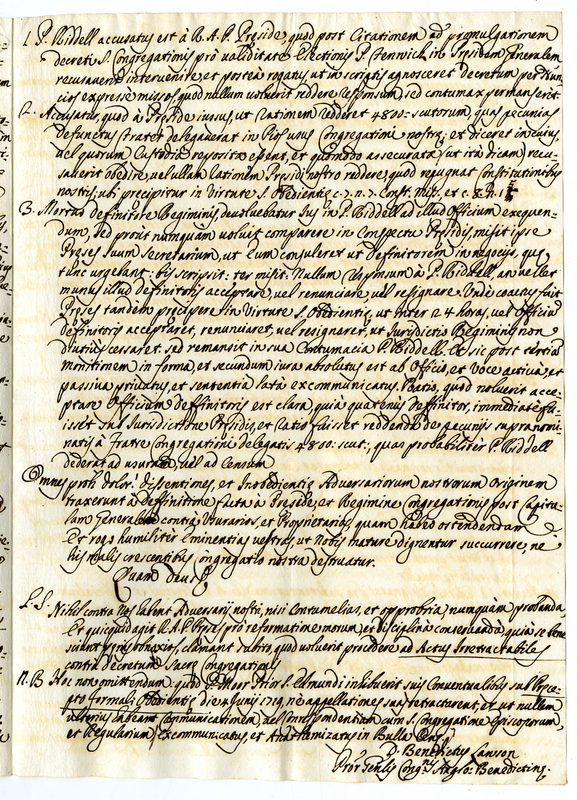 1. P. Riddell accusatus est à R. A. P. Preside, quod post Citationem ad promulgationem
decreti S. Congregationis prò validitate Electionis P. Fenwick in Presidem Generalem
recusaverit intervenire, et posteà rogatus ut in scriptis agnosceret Decretum per Nun-
cios expresse missos, quod nullum voluerit reddere Responsum, sed contumax permanserit.
2. Accusatus, quod à Preside iussus, ut Rationem redderet 4800 scutorum, quas pecunias
defunctus frater delegaverat in Pios usus Congregationis nostrę; et diceret in cuius,
vel quorum Custodia reposita essent, et quomodo assecurata (ut ità dicam) recu-
saverit obedire, vel ullam Rationem Presidi nostro reddere, quod repugnat Constitutionibus
nostris, ubi pręcipitur in Virtute S. Obedientię c. 7. n. 7. Const. Miss. et c. 8. n. 1
3. Mortuo definitore Regiminis devoluebatur Jus in P. Riddell ad illud Officium exequen-
dum, sed proùt numquam voluit comparere in Conspectu Presidis, misit ipse
Preses suum Secretarium, ut Eum consuleret ut definitorem in negocijs, quę
tunc urgebant: bis scripsit: ter misit. Nullam Responsum à P. Riddell, an vellet
munus illud definitoris acceptare, vel renunciare, vel resignare. Unde coactus fuit
Preses tandem pręcipere in Virtute S. Obedientię, ut inter 24 horas, vel Officium
definitoris acceptaret, renunciaret, vel resignaret, ut Jurisdictio Regiminis non
diutius cessaret. sed remansit in sua Contumacia P. Riddell. Et sic post tertiam
monitionem in forma, et secundum iura absolutus est ab Officio, et Voce activa, et
passiva privatus, et sententia lata excommunicatus. Ratio, quod noluerit acce-
ptare Officium deffinitoris est clara, quia quatenus Deffinitor, immediatè fu-
isset sub Jurisdictione Presidis, et Ratio fuisset reddenda de pecunijs supra nomi-
natis à Fratre Congregationi delegatis 4800: scut:, quas probabiliter P. Riddell
dederat ad usuram, vel ad Censum
Omnes proh dolor! dissentiones, et Inobedientię Adversariorum nostrorum originem
traxerunt à deffinitione facta à Preside, et Regimine Congregationis post Capitu-
lum Generale contra Usurarios, et Proprietarios, quam habeo ostendendam
Et rogo humiliter Eminentias vestras, ut Nobis mature dignentur succurrere, ne
his malis crescentibus Congregatio nostra destruatur.
Quam Deus &c
P. S. Nihil contra Nos habent Adversarij nostri, nisi Contumelias, et opprobria, numquam probanda
Et quicquid agit R. A. P. Preses prò reformatione morum, et disciplina conservanda, quia se bene
sciunt esse obnoxios, clamant subito, quod voluerit procedere ad Actus irretractabiles
contra Decretum Sacrę Congregationis
N. B Hoc non omittendum: quod P. Moor Prior S. Edmundi inhibuerit suis Conventualibus sub Pręce-
pto formalis Obedientię die x Junij 1719, nè appellationes suas retractarent, et ut nullam
ulterius habeant Communicationem, vel Correspondentiam cum S. Congregatione Episcoporum,
et Regularium / excommunicatus, et Anathemizatus in Bulla Cenę /
D. Benedictus Lawson
Pror Genlis Congnis Anglo: Benedictinę.